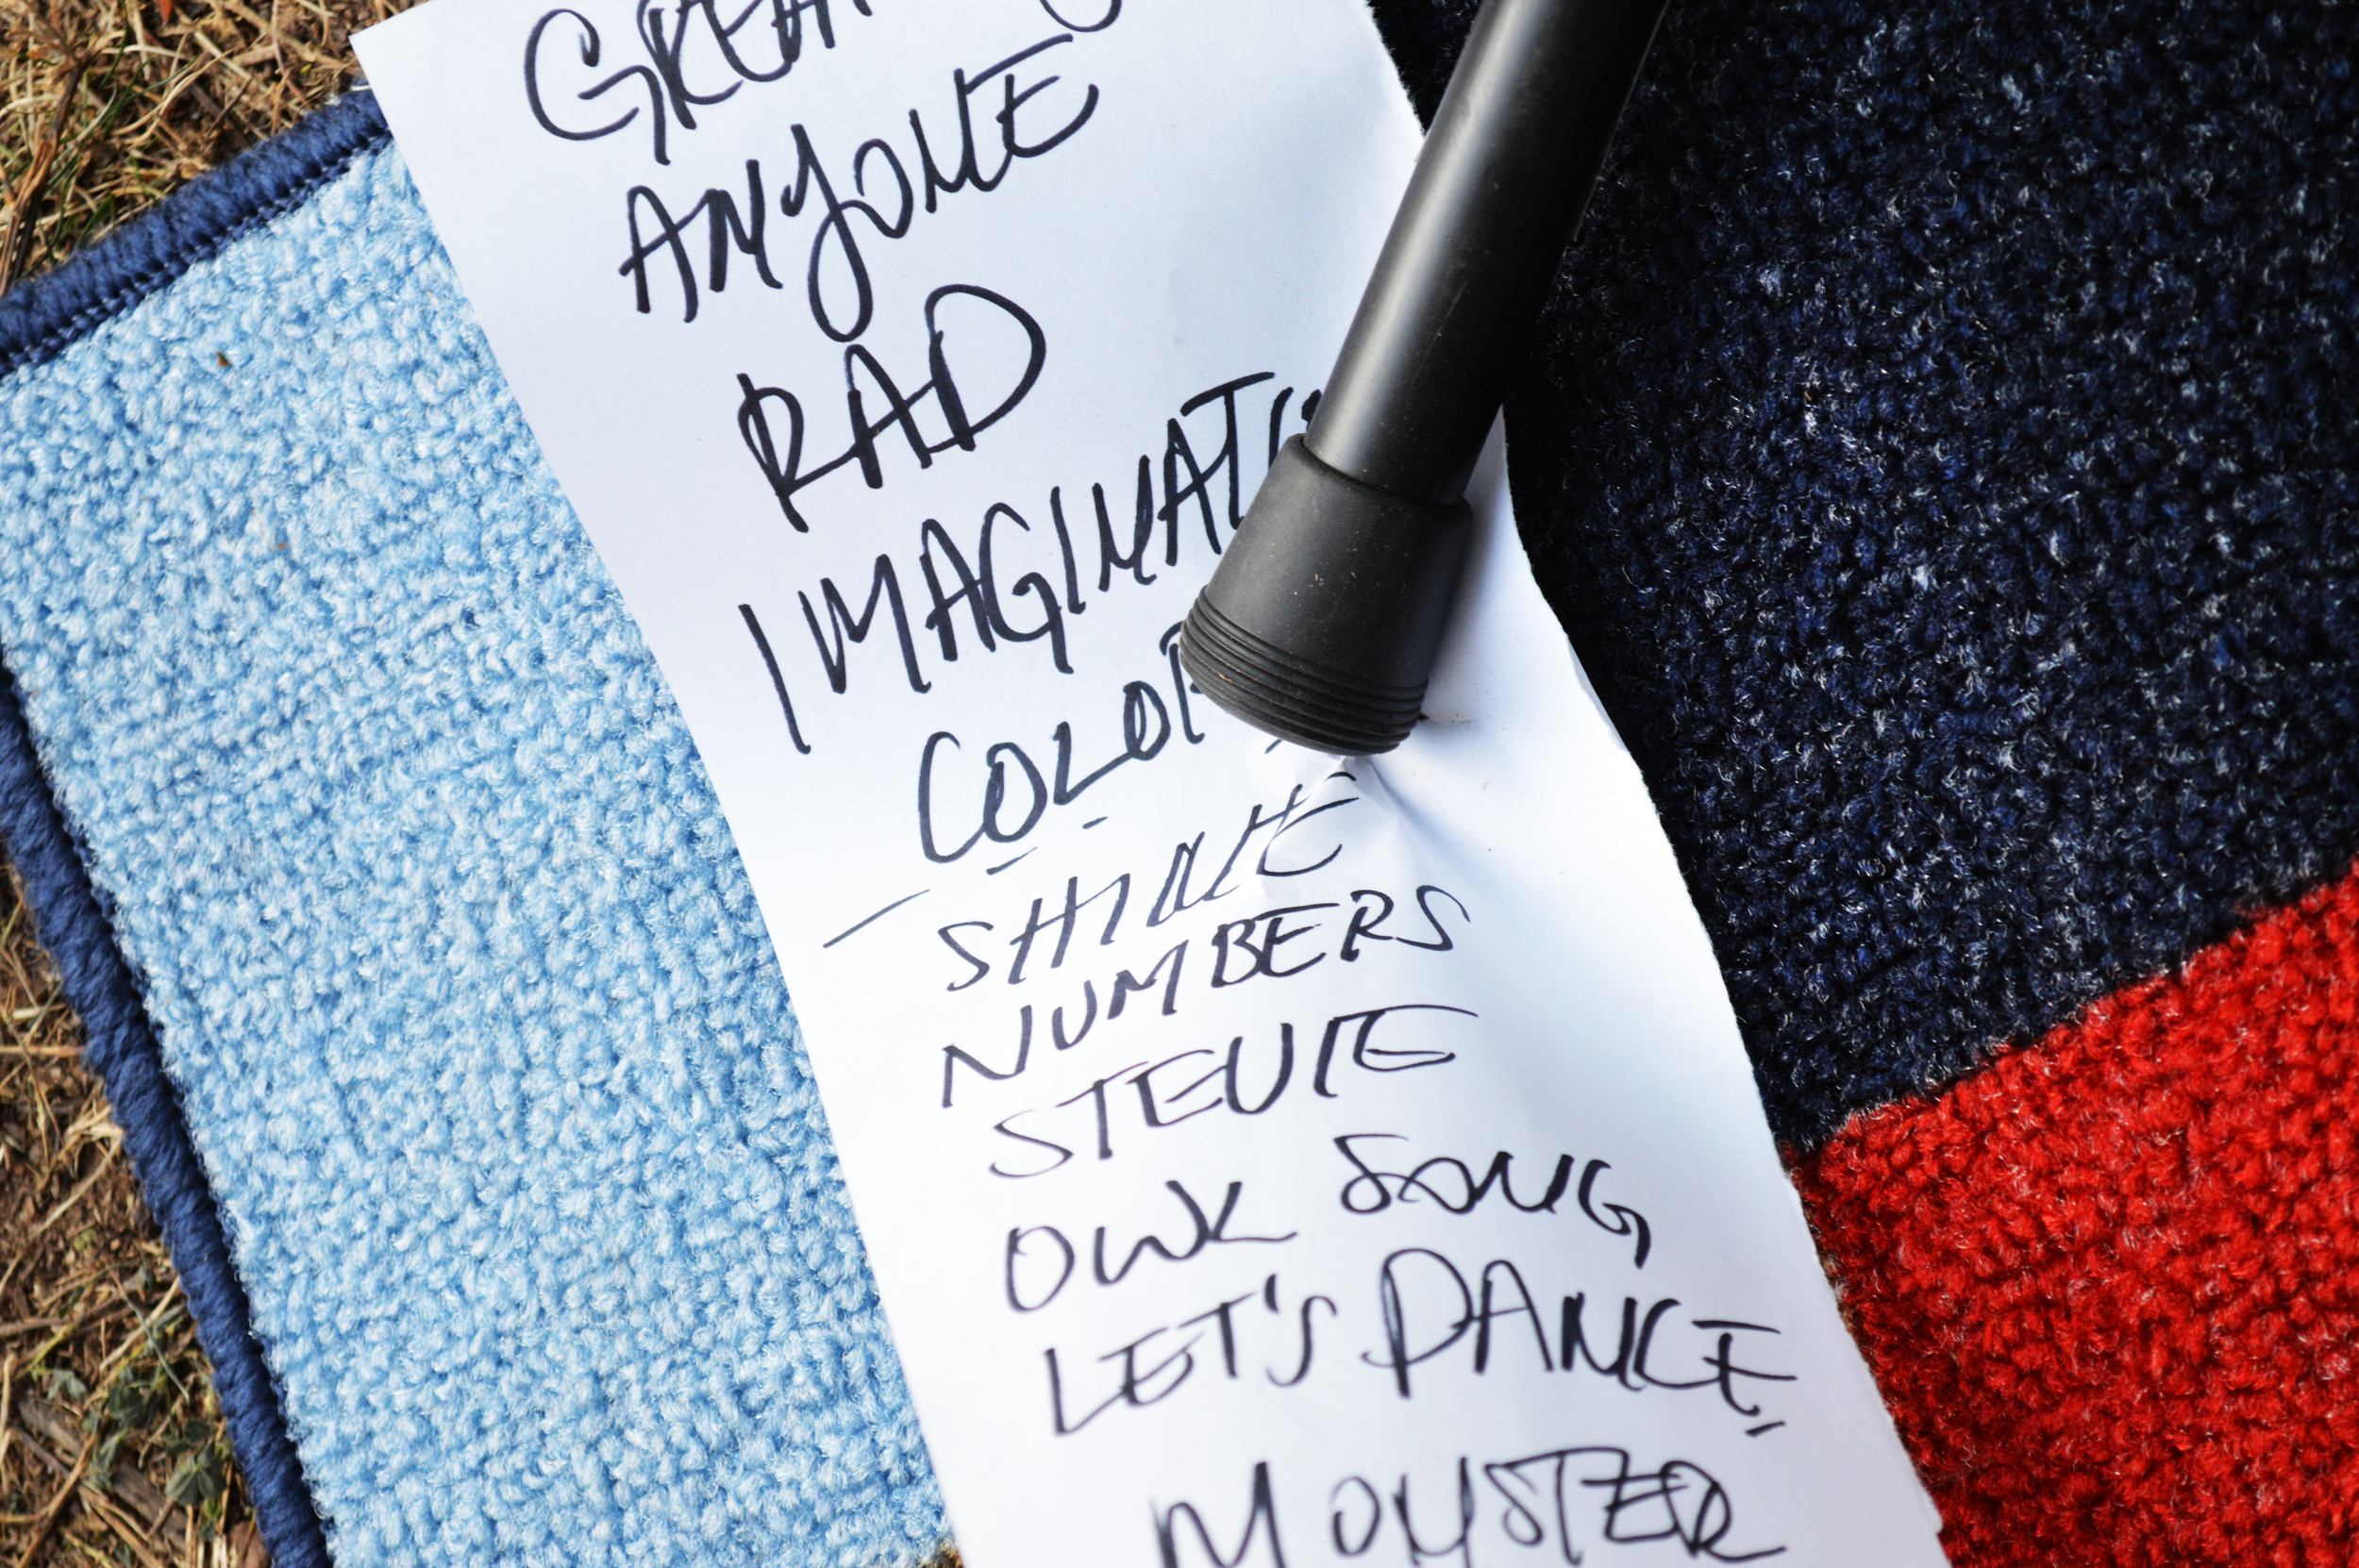 ANYONE
RAD
IMAGINATIO
COLOR
SHINE
NUMBERS
STEVIE
OWL SONG
LET'S DANCE
MONSTER